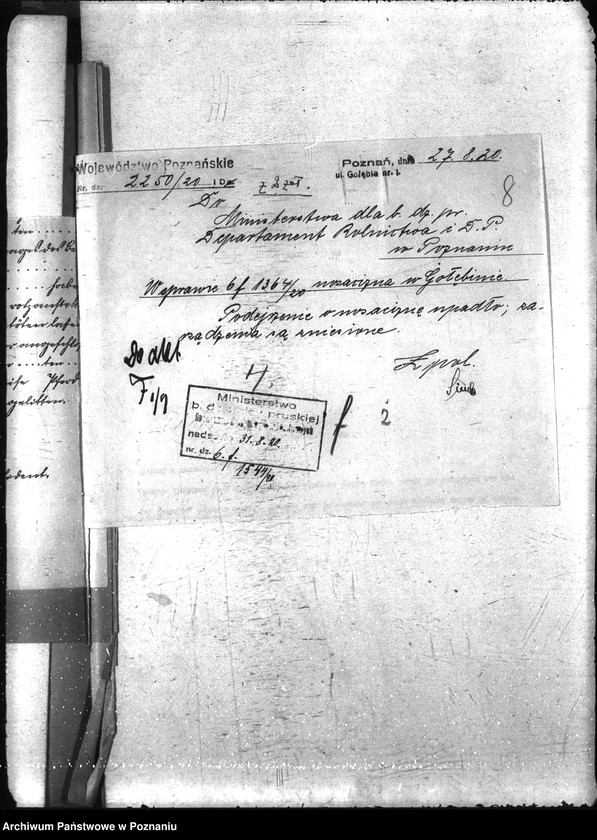 Województwo Poznańskie
Nr. dz. 2250/20 ID
z 2 zał.
Poznań, dn. 27.8.20.
ul. Gołębia nr. 1.
8
Do
Ministerstwa dla b. dz. pr.
Departament Rolnictwa i D. P.
w Poznaniu
W sprawie 6 f 1364/20 nosacizna w Gołębinie.
Podejrzenie o nosaciznę upadło; za-
rządzenia są zniesione.
Z pol.
Do akt
F 1/9
4.
Ministerstwo
b. pruskiej
nad 31.8.20
nr. dz. 6.f.
1544/20
f ż
ages des
Pferd
gelitten.
Archiwum Państwowe w Poznaniu